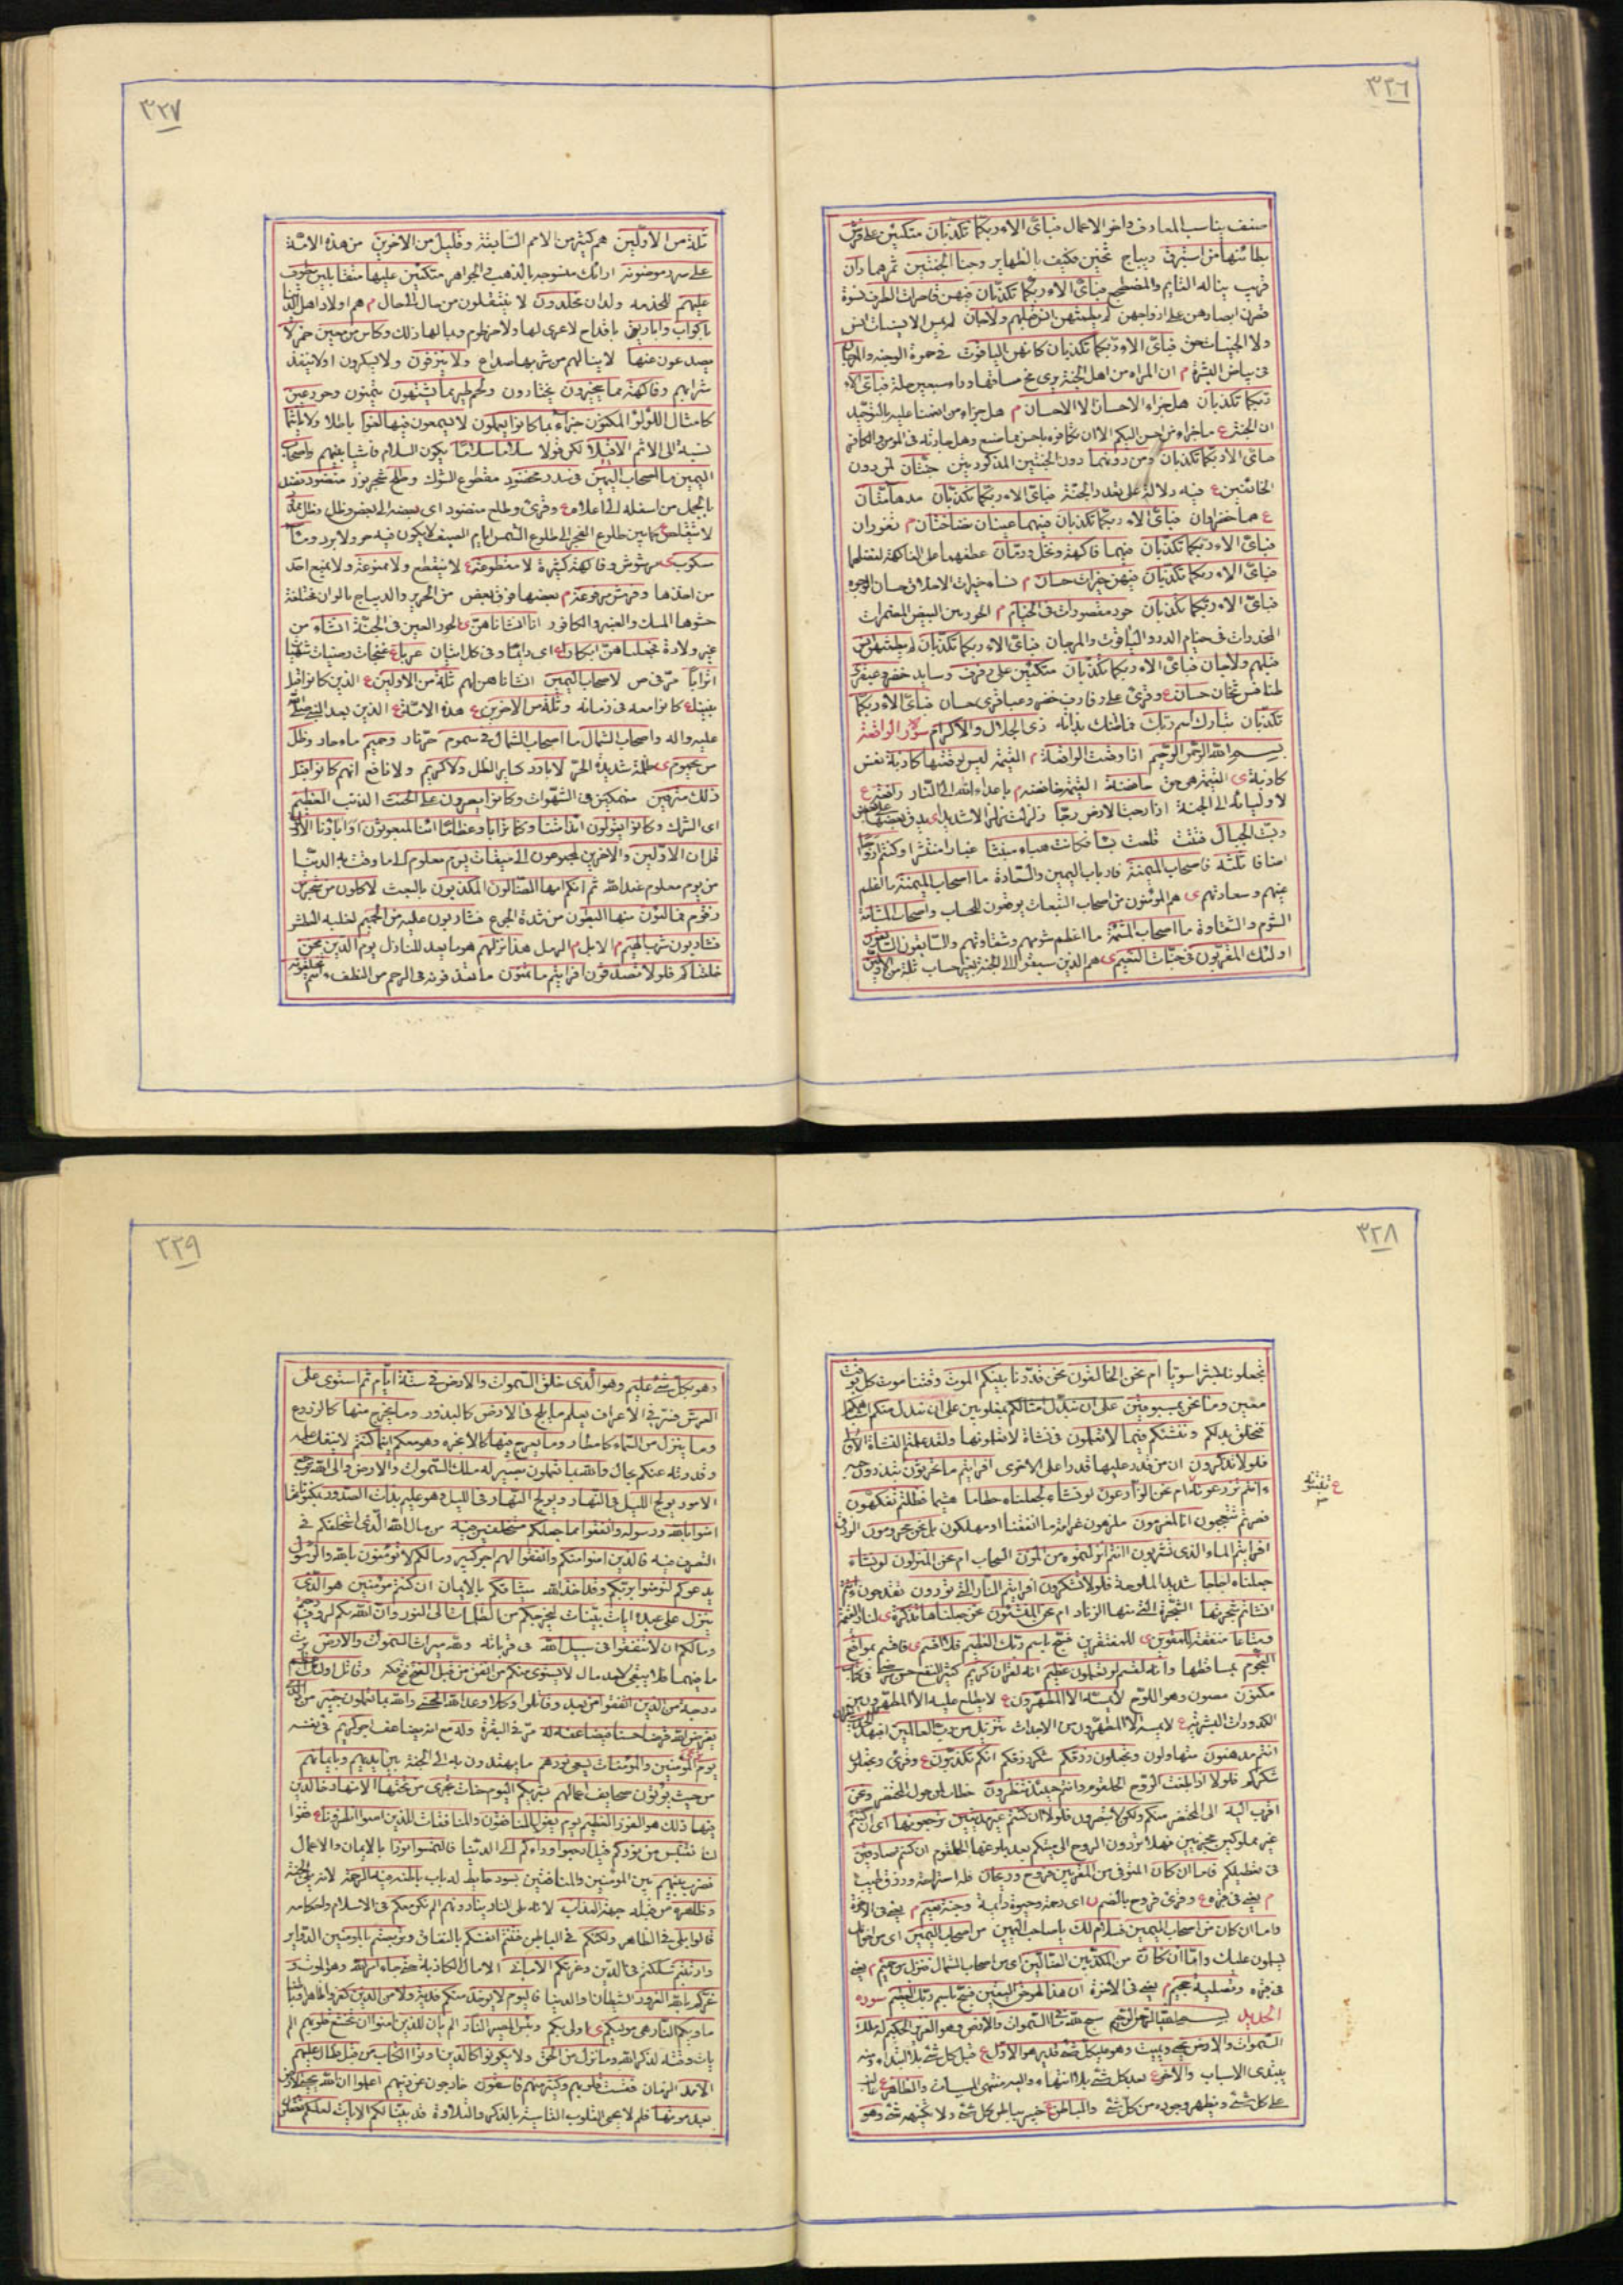 ٣٢٦
صنف يناسب المعارف واخر الاعمال فباى الاء ربكما تكذبان متكئين على فرش
بطائنها من استبرق ديباج ثخين فكيف بالظهاير وجنا الجنتين ثمرهما دان
قريب يناله القايم والمضطجع فباى الاء ربكما تكذبان فيهن قاصرات الطرف نسوة
قصرن ابصارهن على ازواجهن لم يطمثهن انس قبلهم ولا جان لم يمس الانسيات انس
ولا الجنيات جن فباى الاء ربكما تكذبان كانهن الياقوت فى حمرة الوجنة والمرجان
فى بياض البشرة م ان المراه من اهل الجنة يرى مخ ساقها وراء سبعين حلة فباى الاء
ربكما تكذبان هل جزاء الاحسان الا الاحسان م هل جزاء من انعمنا عليه بالتوحيد
الا الجنة ع
صاى الاء ربكما تكذبان ومن دونهما دون الجنتين المذكورتين جنتان لمن دون
الخائفين ع فيه دلالة على تعدد الجنة فباى الاء ربكما تكذبان مدهامتان
ع هما خضراوان فباى الاء ربكما تكذبان فيهما عينان نضاختان م تفوران
فباى الاء ربكما تكذبان فيهما فاكهة ونخل ورمان عطفهما على الفاكهة لفضلهما
فباى الاء ربكما تكذبان فيهن خيرات حسان م نساء خيرات الاخلاق حسان الوجوه
فباى الاء ربكما تكذبان حور مقصورات فى الخيام م الحور هن البيض المضمرات
المخدرات فى خيام الدر والياقوت والمرجان فباى الاء ربكما تكذبان لم يطمثهن انس
قبلهم ولا جان فباى الاء ربكما تكذبان متكئين على رفرف وسايد خضر وعبقرى
طنافس ثخان حسان ع وقرئ على رفارف خضر وعباقرى حسان فباى الاء ربكما
تكذبان تبارك اسم ربك فما ظنك بذاته ذى الجلال والاكرام سورة الواقعة
بسم الله الرحمن الرحيم اذا وقعت الواقعة م القيمة ليس لوقعتها كاذبة نفس
كاذبة ى القيمة هى حق خافضة القيمة خافضة م باعداء الله الى النار رافعة ع
لاوليائه الى الجنة اذا رجت الارض رجا زلزلت زلزالا شديدا ى يدق بعضها على بعض
وبست الجبال فتتت قلعت بسا فكانت هباء منبثا غبارا منتشرا وكنتم ازواجا
اصنافا ثلثة فاصحاب الميمنة فارباب اليمين والسعادة ما اصحاب الميمنة ما اعظم
يمنهم وسعادتهم ى هم المؤمنون من اصحاب التبعات يوقفون للحساب واصحاب المشأمة
الشوم والشقاوة ما اصحاب المشئمة ما اعظم شومهم وشقاوتهم والسابقون السابقون
اولئك المقربون فى جنات النعيم ى هم الذين سبقوا الى الجنة بغير حساب ثلة من الاولين
٣٢٧
ثلة من الاولين هم كثير من الامم السابقة وقليل من الاخرين من هذه الامة
على سرر موضونة ارائك منسوجة بالذهب فى الجواهر متكئين عليها متقابلين يطوف
عليهم للخدمه ولدان مخلدون لا ينتقلون من حال الى حال م هم اولاد اهل الدنيا
باكواب واباريق باقداح لا عرى لها ولا خرطوم وبما لها ذلك وكاس من معين خمر لا
يصدعون عنها لا ينالهم من شربها صداع ولا ينزفون ولا يسكرون او لا ينفد
شرابهم وفاكهة مما يتخيرون يختارون ولحم طير مما يشتهون يتمنون وحور عين
كامثال اللؤلؤ المكنون جزاء بما كانوا يعملون لا يسمعون فيها لغوا باطلا ولا تاثيما
نسبة الى الاثم الا قيلا لكن قولا سلاما سلاما يكون السلام فاشيا بينهم واصحاب
اليمين ما اصحاب اليمين فى سدر مخضود مقطوع الشوك وطلح شجر موز منضود نضد
بالحمل من اسفله الى اعلاه ع وقرئ وطلع منضود اى بعضه الى بعض وظل ممدود
لا يتقلص كما بين طلوع الفجر الى طلوع الشمس ايام الصيف لا يكون فيه حر ولا برد وماء
مسكوب مرشوش وفاكهة كثيرة لا مقطوعة ع لا ينقطع ولا ممنوعة ولا يمنع احد
من اخذها وفرش مرفوعة م بعضها فوق بعض من الحرير والديباج بالوان مختلفة
حشوها المسك والعنبر والكافور انا انشاناهن ى الحور العين فى الجنة انشاء من
غير ولادة فجعلناهن ابكارا ع اى دايما وفى كل اتيان عربا غنجات
اترابا مر فى ص لاصحاب اليمين انشاناهن لهم ثلة من الاولين ع الذين كانوا قبل
نبينا ع كانوا معه فى زمانه وثلة من الاخرين ع هذه الامة ع الذين بعد النبى صلى الله
عليه واله واصحاب الشمال ما اصحاب الشمال فى سموم حر نار وحميم ماء حار وظل
من يحموم ى ظلمة شديدة الحر لا بارد كساير الظل ولا كريم ولا نافع انهم كانوا قبل
ذلك مترفين منهمكين فى الشهوات وكانوا يصرون على الحنث الذنب العظيم
اى الشرك وكانوا يقولون ائذا متنا وكنا ترابا وعظاما ائنا لمبعوثون اواباؤنا الاولون
قل ان الاولين والاخرين لمجموعون الى ميقات يوم معلوم الى ما وقت به الدنيا
من يوم معلوم عند الله ثم انكم ايها الضالون المكذبون بالبعث لاكلون من شجر من
زقوم فمالئون منها البطون من شدة الجوع فشاربون عليه من الحميم لغلبة العطش
فشاربون شرب الهيم م الابل م الرمل هذا نزلهم هو ما يعد للنازل يوم الدين نحن
خلقناكم فلولا تصدقون افرايتم ما تمنون ما تقذفونه فى الرحم من النطف ءانتم تخلقونه
٣٢٨
تجعلونه بشرا سويا ام نحن الخالقون نحن قدرنا بينكم الموت وقتنا موت كل بوقت
معين وما نحن بمسبوقين على ان نبدل امثالكم بمغلوبين على ان نبدل منكم اشباهكم
فنخلق بدلكم وننشئكم فيما لا تعلمون فى نشاة لا تعلمونها ولقد علمتم النشاة الاولى
فلولا تذكرون ان من قدر عليها قدر على الاخرى افرايتم ما تحرثون تبذرون حبه
ءانتم تزرعونه ام نحن الزارعون لو نشاء لجعلناه حطاما هشيما فظلتم تفكهون
ع تنبتونه
فصرتم تتعجبون انا لمغرمون ملزمون غرامة ما انفقنا او مهلكون بل نحن محرومون الرزق
افرايتم الماء الذى تشربون ءانتم انزلتموه من المزن السحاب ام نحن المنزلون لو نشاء
جعلناه اجاجا شديد الملوحة فلولا تشكرون افرايتم النار التى تورون تقدحون ءانتم
انشاتم شجرتها الشجرة التى منها الزناد ام نحن المنشئون نحن جعلناها تذكرة ى لنار القيمة
ومتاعا منفعة للمقوين ى للمفتقرين فسبح باسم ربك العظيم فلا اقسم ى فاقسم بمواقع
النجوم بمساقطها وانه لقسم لو تعلمون عظيم انه لقران كريم كثير النفع حسن مرضى فى كتاب
مكنون مصون وهو اللوح لا يمسه الا المطهرون ع لا يطلع عليه الا المطهرون من
الكدورات البشرية ع لا يمسه الا المطهرون من الاحداث تنزيل من رب العالمين افبهذا الحديث
انتم مدهنون متهاونون وتجعلون رزقكم شكر رزقكم انكم تكذبون ع وقرئ وتجعلون
شكركم فلولا اذا بلغت الروح الحلقوم وانتم حينئذ تنظرون خطاب لمن حول المحتضر ونحن
اقرب اليه الى المحتضر منكم ولكن لا تبصرون فلولا ان كنتم غير مدينين ترجعونها اى ان كنتم
غير مملوكين مجزيين فهلا تردون الروح الى ميتكم بعد بلوغها الحلقوم ان كنتم صادقين
فى تعطيلكم فاما ان كان المتوفى من المقربين فروح وريحان فله استراحة ورزق طيب
م يعنى فى قبره ع وقرئ فروح بالضم اى رحمة وحيوة دايمة وجنة نعيم م يعنى فى الاخرة
واما ان كان من اصحاب اليمين فسلام لك يا صاحب اليمين من اصحاب اليمين اى من اخوانك
يسلمون عليك واما ان كان من المكذبين الضالين اى من اصحاب الشمال فنزل من حميم م يعنى
فى قبره وتصلية جحيم م يعنى فى الاخرة ان هذا لهو حق اليقين فسبح باسم ربك العظيم سورة
الحديد بسم الله الرحمن الرحيم سبح لله ما فى السموات والارض وهو العزيز الحكيم له ملك
السموات والارض يحيى ويميت وهو على كل شئ قدير هو الاول ع قبل كل شئ بلا ابتداء ومنه
يبتدى الاسباب والاخر ع بعد كل شئ بلا انتهاء واليه منتهى المسببات والظاهر ع غالب
على كل شئ ويظهر وجوده من كل شئ والباطن ع خبير بباطن كل شئ ولا يكتنهه شئ وهو
٣٢٩
وهو بكل شئ عليم وهو الذى خلق السموات والارض فى ستة ايام ثم استوى على
العرش فسر فى الاعراف يعلم ما يلج فى الارض كالبذور وما يخرج منها كالزروع
وما ينزل من السماء كامطار وما يعرج فيها كالابخره وهو معكم اينما كنتم لا ينفك علمه
وقدرته عنكم بحال والله بما تعملون بصير له ملك السموات والارض والى الله ترجع
الامور يولج الليل فى النهار ويولج النهار فى الليل وهو عليم بذات الصدور بمكنوناتها
امنوا بالله ورسوله وانفقوا مما جعلكم مستخلفين فيه من مال الله الذى استخلفكم فى
التصرف فيه فالذين امنوا منكم وانفقوا لهم اجر كبير ومالكم لا تؤمنون بالله والرسول
يدعوكم لتؤمنوا بربكم وقد اخذ الله ميثاقكم بالايمان ان كنتم مؤمنين هو الذى
ينزل على عبده ايات بينات ليخرجكم من الظلمات الى النور وان الله بكم لرؤف رحيم
ومالكم ان لا تنفقوا فى سبيل الله فى قرباته ولله ميراث السموات والارض يرث
ما فيهما فلا يبقى لاحد مال لا يستوى منكم من انفق من قبل الفتح فتح مكه وقاتل اولئك اعظم
درجة من الذين انفقوا من بعد وقاتلوا وكلا وعد الله الحسنى والله بما تعملون خبير من ذا الذى
يقرض الله قرضا حسنا فيضاعفه له مر فى البقرة وله مع التضاعف اجر كريم فى نفسه
يوم ترى المؤمنين والمؤمنات يسعى نورهم ما يهتدون به الى الجنة بين ايديهم وبايمانهم
من حيث يؤتون صحايف اعمالهم بشريكم اليوم جنات تجرى من تحتها الانهار خالدين
فيها ذلك هو الفوز العظيم يوم يقول المنافقون والمنافقات للذين امنوا انظرونا ع قفوا
لنا نقتبس من نوركم قيل ارجعوا وراءكم الى الدنيا فالتمسوا نورا بالايمان والاعمال
فضرب بينهم بين المؤمنين والمنافقين بسور حايط له باب باطنه فيه الرحمة لانه يلى الجنة
وظاهره من قبله جهته العذاب لانه يلى النار ينادونهم الم نكن معكم فى الاسلام واحكامه
قالوا بلى فى الظاهر ولكنكم فى الباطن فتنتم انفسكم بالنفاق وتربصتم بالمؤمنين الدواير
وارتبتم شككتم فى الدين وغرتكم الامانى الامال الكاذبة حتى جاء امر الله وهو الموت و
غركم بالله الغرور الشيطان او الدنيا فاليوم لا يؤخذ منكم فدية ولا من الذين كفروا ظاهرا وباطنا
ماويكم النار هى موليكم ى اولى بكم وبئس المصير النار الم يان للذين امنوا ان تخشع قلوبهم الم
يات وقته لذكر الله وما نزل من الحق ولا يكونوا كالذين اوتوا الكتاب من قبل فطال عليهم
الامد الزمان فقست قلوبهم وكثير منهم فاسقون خارجون عن دينهم اعلموا ان الله يحيى الارض
بعد موتها فلم لا يحيى القلوب القاسية بالذكر والتلاوة قد بينا لكم الايات لعلكم تعقلون